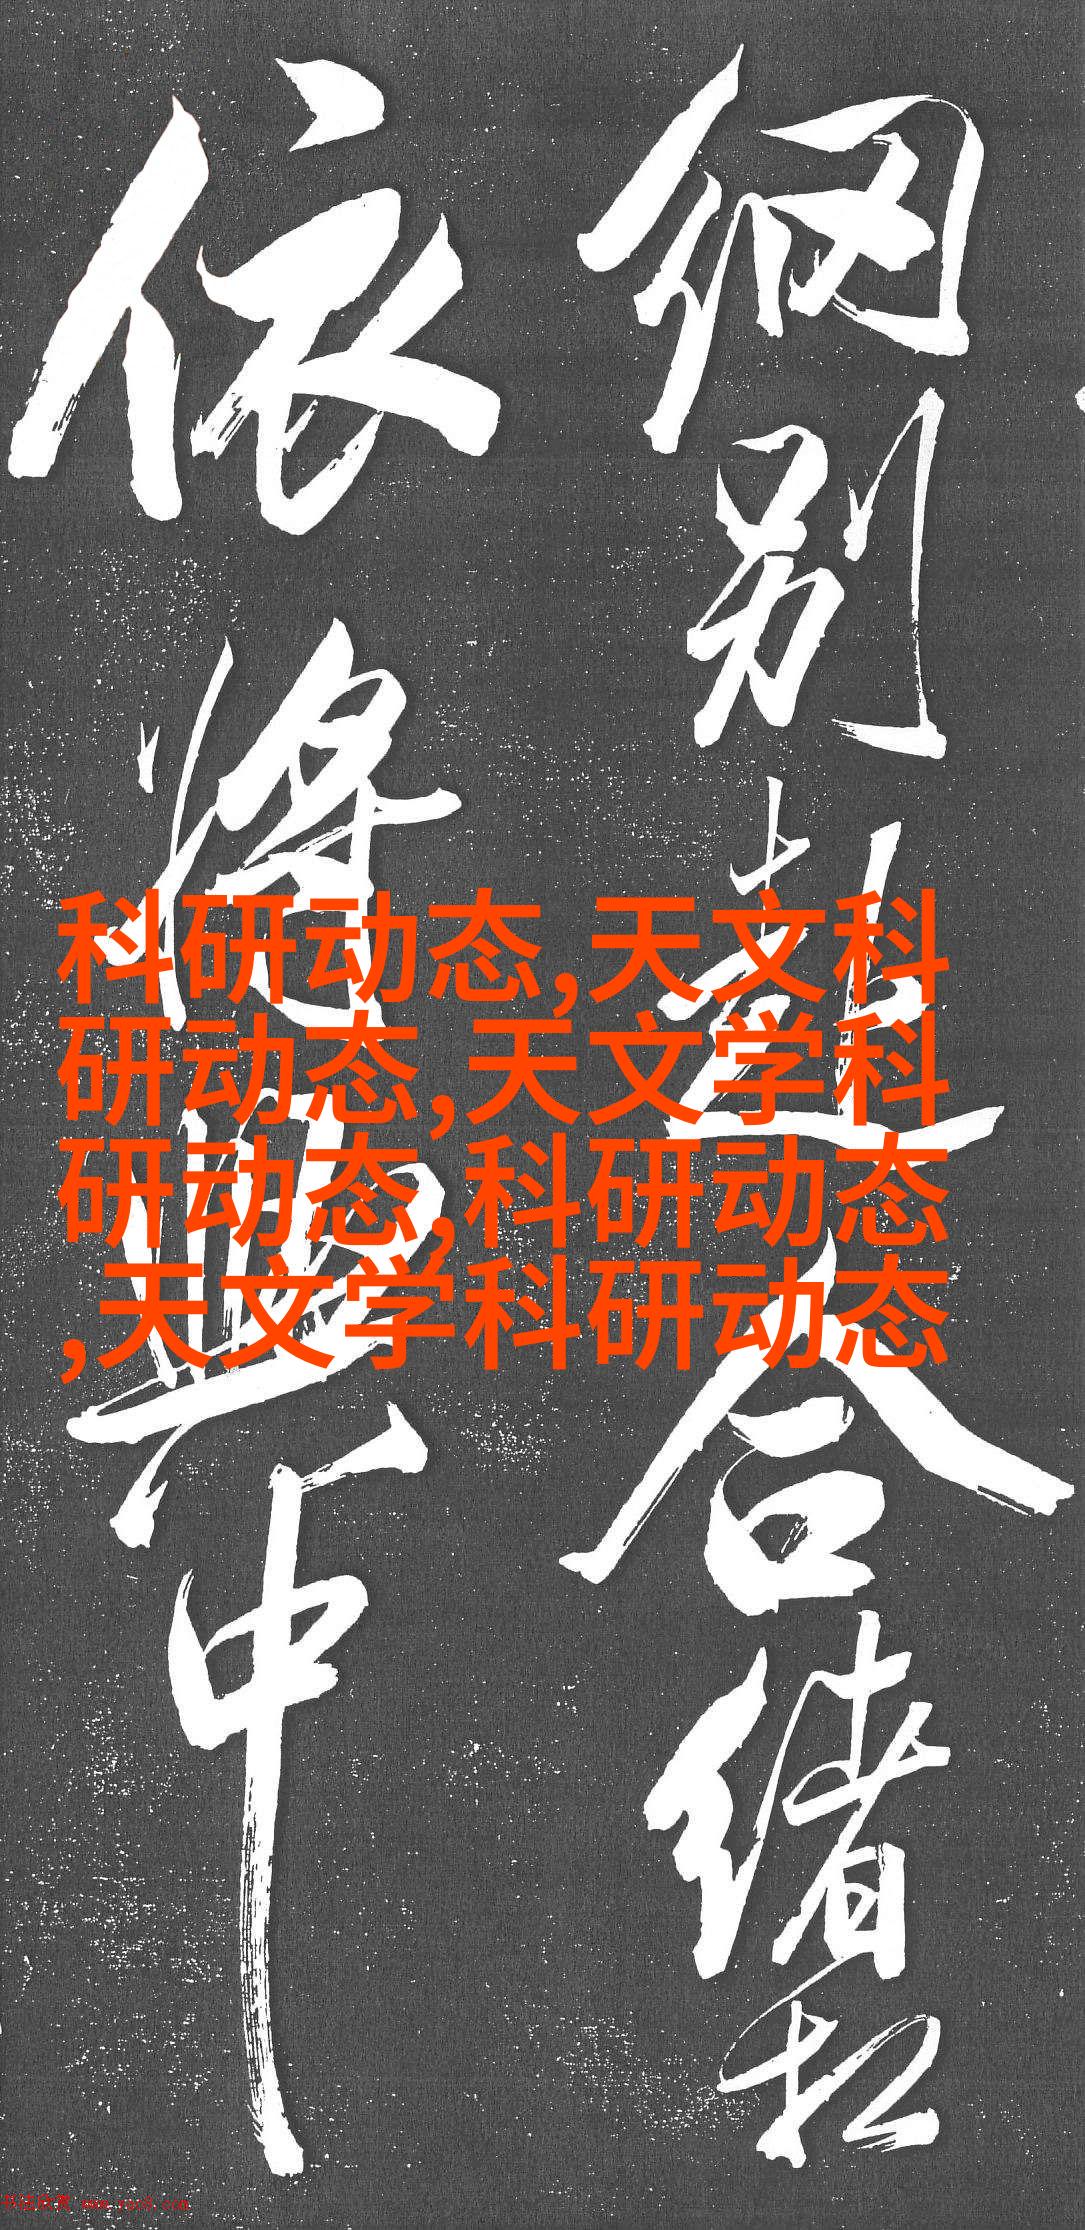 细别趣合绪松
依将兴中
科研动态,天文科
研动态,天文学科
研动态,科研动态
,天文学科研动态
书法欣赏 www.yac8.com